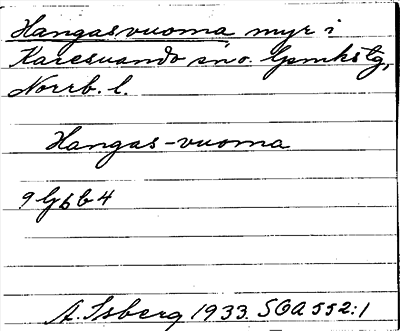 Hangasvuoma myr i
Karesuando sn o. lpmkstg,
Norrb. l.
Hangas-vuoma
9 G b 4
A. Isberg 1933. SOA 552:1